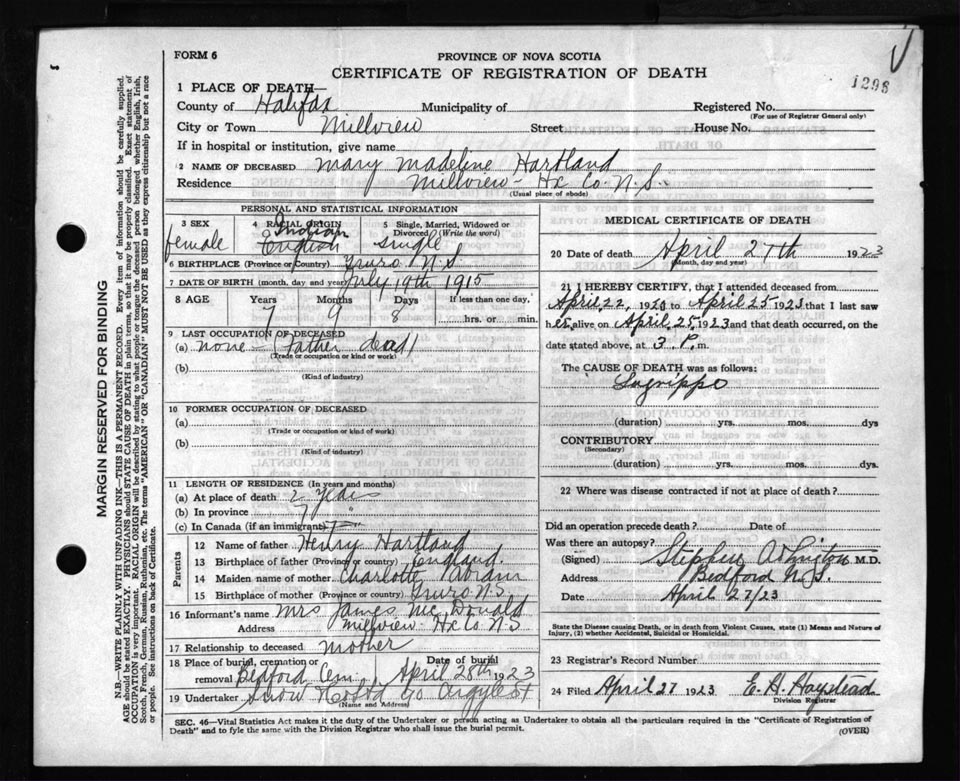 FORM 6
PROVINCE OF NOVA SCOTIA
CERTIFICATE OF REGISTRATION OF DEATH
1296
1 PLACE OF DEATH—
County of Halifax Municipality of Registered No.
(For use of Registrar General only)
City or Town Millview Street House No.
If in hospital or institution, give name
2 NAME OF DECEASED Mary Madeline Hartland
Residence Millview - Hx Co. N.S.
(Usual place of abode)
PERSONAL AND STATISTICAL INFORMATION
3 SEX 4 RACIAL ORIGIN 5 Single, Married, Widowed or Divorced (Write the word)
female Indian English single
6 BIRTHPLACE (Province or Country) Truro N.S.
7 DATE OF BIRTH (month, day and year) July 19th 1915
8 AGE Years Months Days If less than one day,
7 9 8 hrs. or min.
9 LAST OCCUPATION OF DECEASED
(a) none - (Father dead)
(Trade or occupation or kind or work)
(b)
(Kind of industry)
10 FORMER OCCUPATION OF DECEASED
(a)
(Trade or occupation or kind or work)
(b)
(Kind of industry)
11 LENGTH OF RESIDENCE (In years and months)
(a) At place of death 2 years
(b) In province 7 "
(c) In Canada (if an immigrant)
Parents
12 Name of father Henry Hartland
13 Birthplace of father (Province or Country) England.
14 Maiden name of mother Charlotte
15 Birthplace of mother (Province or Country) Truro N.S.
16 Informant's name Mrs James McDonald
Address Millview Hx Co N S
17 Relationship to deceased mother
18 Place of burial, cremation or removal Bedford Cem. Date of burial April 28th 1923
19 Undertaker Snow Co Argyle St
(Name and Address)
MEDICAL CERTIFICATE OF DEATH
20 Date of death April 27th 1923
(Month, day and year)
21 I HEREBY CERTIFY, that I attended deceased from
April, 22, 1920 to April 25 1923 that I last saw
her alive on April, 25, 1923 and that death occurred, on the
date stated above, at 3 P. m.
The CAUSE OF DEATH was as follows:
Lagrippe
(duration) yrs. mos. dys
CONTRIBUTORY
(Secondary)
(duration) yrs. mos. dys.
22 Where was disease contracted if not at place of death?
Did an operation precede death? Date of
Was there an autopsy?
(Signed) Stephen M.D.
Address Bedford N.S.
Date April 27/23
State the Disease causing Death, or in death from Violent Causes, state (1) Means and Nature of
Injury, (2) whether Accidental, Suicidal or Homicidal.
23 Registrar's Record Number
24 Filed April 27 1923
Division Registrar
SEC. 46—Vital Statistics Act makes it the duty of the Undertaker or person acting as Undertaker to obtain all the particulars required in the "Certificate of Registration of
Death" and to fyle the same with the Division Registrar who shall issue the burial permit.
(OVER)
MARGIN RESERVED FOR BINDING
N.B.—WRITE PLAINLY WITH UNFADING INK—THIS IS A PERMANENT RECORD. Every item of information should be carefully supplied.
AGE should be stated EXACTLY. PHYSICIANS should STATE CAUSE OF DEATH in plain terms, so that it may be properly classified. Exact statement of
OCCUPATION is very important. RACIAL ORIGIN will be described by stating to what people or tongue the deceased person belonged whether English, Irish,
Scotch, French, German, Russian, Ruthenian, etc. The terms "AMERICAN" OR "CANADIAN" MUST NOT BE USED as they express citizenship but not a race
or people. See instructions on back of Certificate.